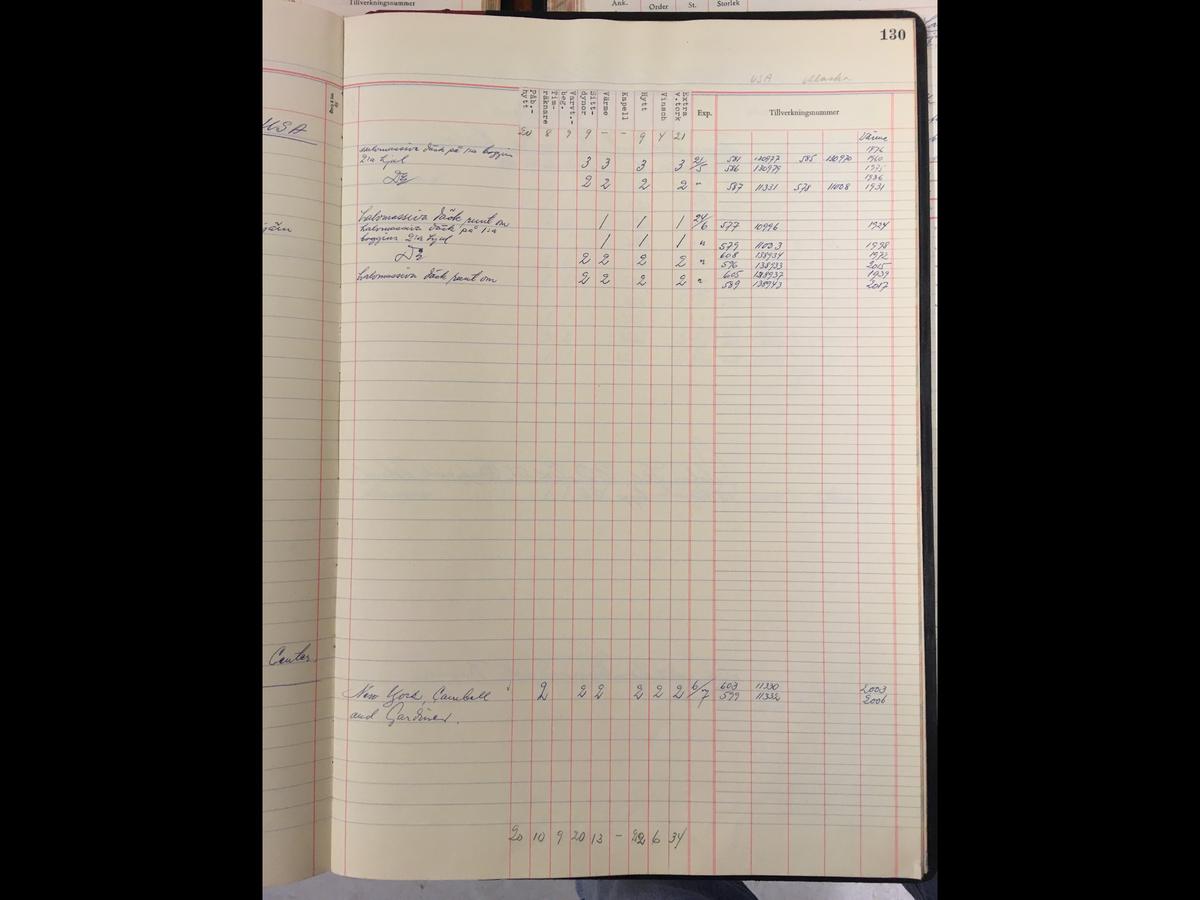 Tillverkningsnummer Ank. Order St. Storlek
130
USA
USA
Påb.-hytt Tim-räknare beg. Varvt.- Sitt-dynor Värme Kapell Hytt Vinsch Extra v.tork Exp. Tillverkningsnummer
20 8 9 9 - - 9 4 21 Värme
halvmassiva däck på 1:a boggien 1876
2:a hjul 3 3 3 3 21/5 581 130977 585 130970 1960
586 130979 1975
D:o 1936
2 2 2 2 " 587 11331 578 11008 1931
halvmassiva däck runt om 1 1 1 24/6 577 10996 1924
halvmassiva däck på 1:a
boggiens 2:a hjul 1 1 1 " 579 11023 1998
D:o 2 2 2 2 " 608 138934 1972
596 138933 2015
halvmassiva däck runt om 2 2 2 2 " 605 138937 1939
589 138943 2017
Center
New York, Cambell 2 2 2 2 2 2 6/7 603 11330 2003
and Gardiner. 599 11332 2006
20 10 9 20 13 - 22 6 34